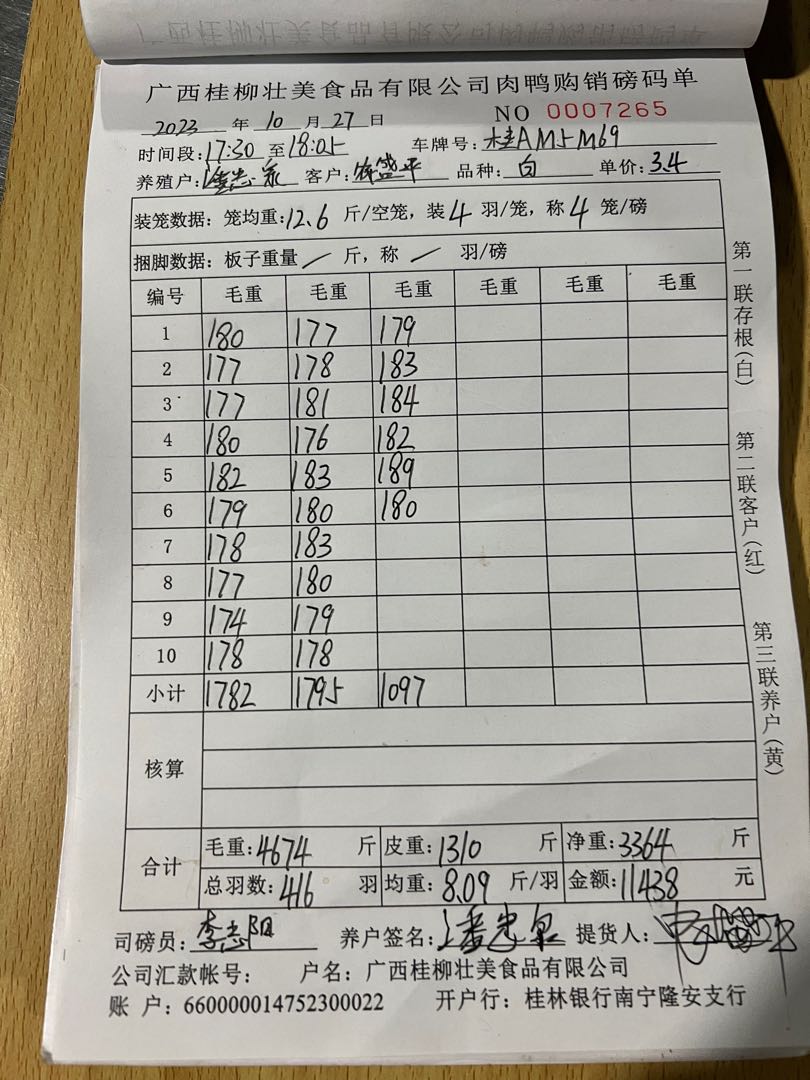 广西桂柳壮美食品有限公司肉鸭购销磅码单
2023 年 10 月 27 日 NO 0007265
时间段:17:30 至 18:05 车牌号:桂AM5M69
养殖户:潘忠泉 客户: 品种:白 单价:3.4
装笼数据:笼均重:12.6 斤/空笼,装 4 羽/笼,称 4 笼/磅
捆脚数据:板子重量 / 斤,称 / 羽/磅
编号 毛重 毛重 毛重 毛重 毛重 毛重
1 180 177 179
2 177 178 183
3 177 181 184
4 180 176 182
5 182 183 189
6 179 180 180
7 178 183
8 177 180
9 174 179
10 178 178
小计 1782 1795 1097
核算
合计 毛重:4674 斤 皮重:1310 斤 净重:3364 斤
总羽数:416 羽 均重:8.09 斤/羽 金额:11438 元
司磅员:李志阳 养户签名:潘忠泉 提货人:
公司汇款帐号: 户名:广西桂柳壮美食品有限公司
账 户:660000014752300022 开户行:桂林银行南宁隆安支行
第一联存根(白)
第二联客户(红)
第三联养户(黄)